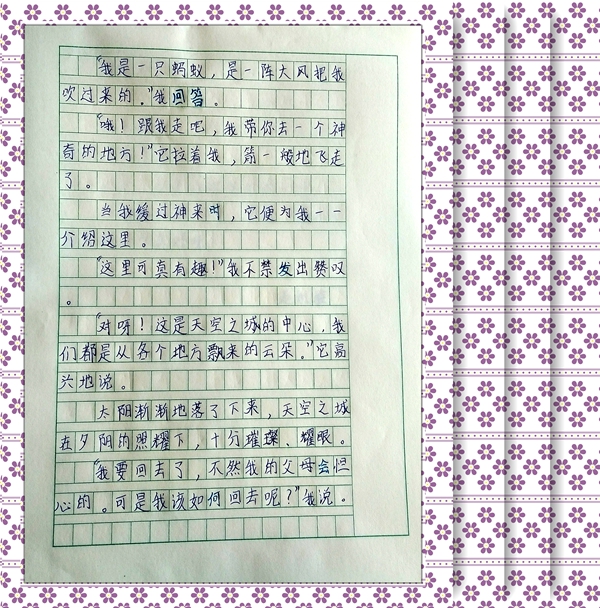 “我是一只蚂蚁，是一阵大风把我
吹过来的。”我回答。
“哦！跟我走吧，我带你去一个神
奇的地方！”它拉着我，箭一般地飞走
了。
当我缓过神来时，它便为我一一
介绍这里。
“这里可真有趣！”我不禁发出赞叹
。
“对呀！这是天空之城的中心，我
们都是从各个地方飘来的云朵。”它高
兴地说。
太阳渐渐地落了下来，天空之城
在夕阴的照耀下，十分璀璨、耀眼。
“我要回去了，不然我的父母会担
心的。可是我该如何回去呢？”我说。